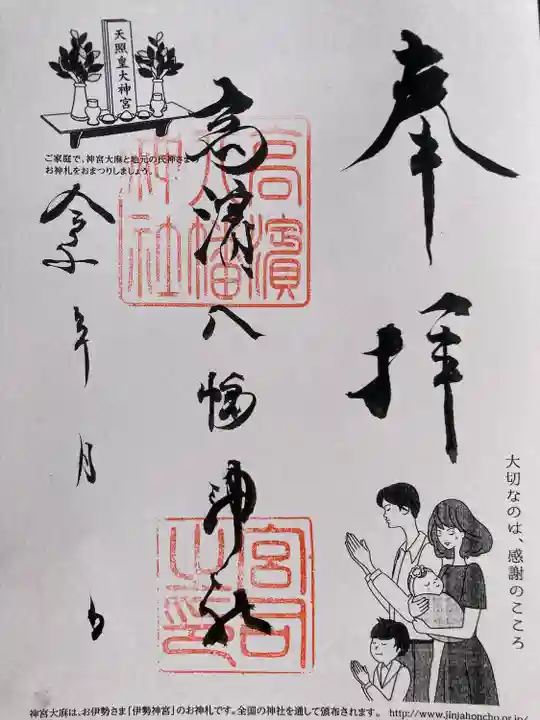 奉拝
高濱八幡神社
令 年 月 日
高濱
八幡
神社
宮司
之印
天照皇大神宮
ご家庭で、神宮大麻と地元の氏神さまの
お神札をおまつりしましょう。
大切なのは、感謝のこころ
神宮大麻は、お伊勢さま「伊勢神宮」のお神札です。全国の神社を通して頒布されます。 http://www.jinjahoncho.or.jp/